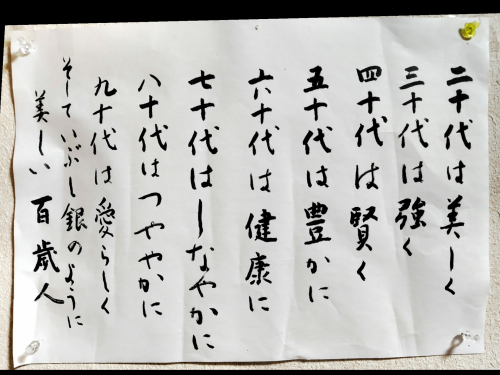 二十代は美しく
三十代は強く
四十代は賢く
五十代は豊かに
六十代は健康に
七十代はしなやかに
八十代はつややかに
九十代は愛らしく
そしていぶし銀のように
美しい百歳人